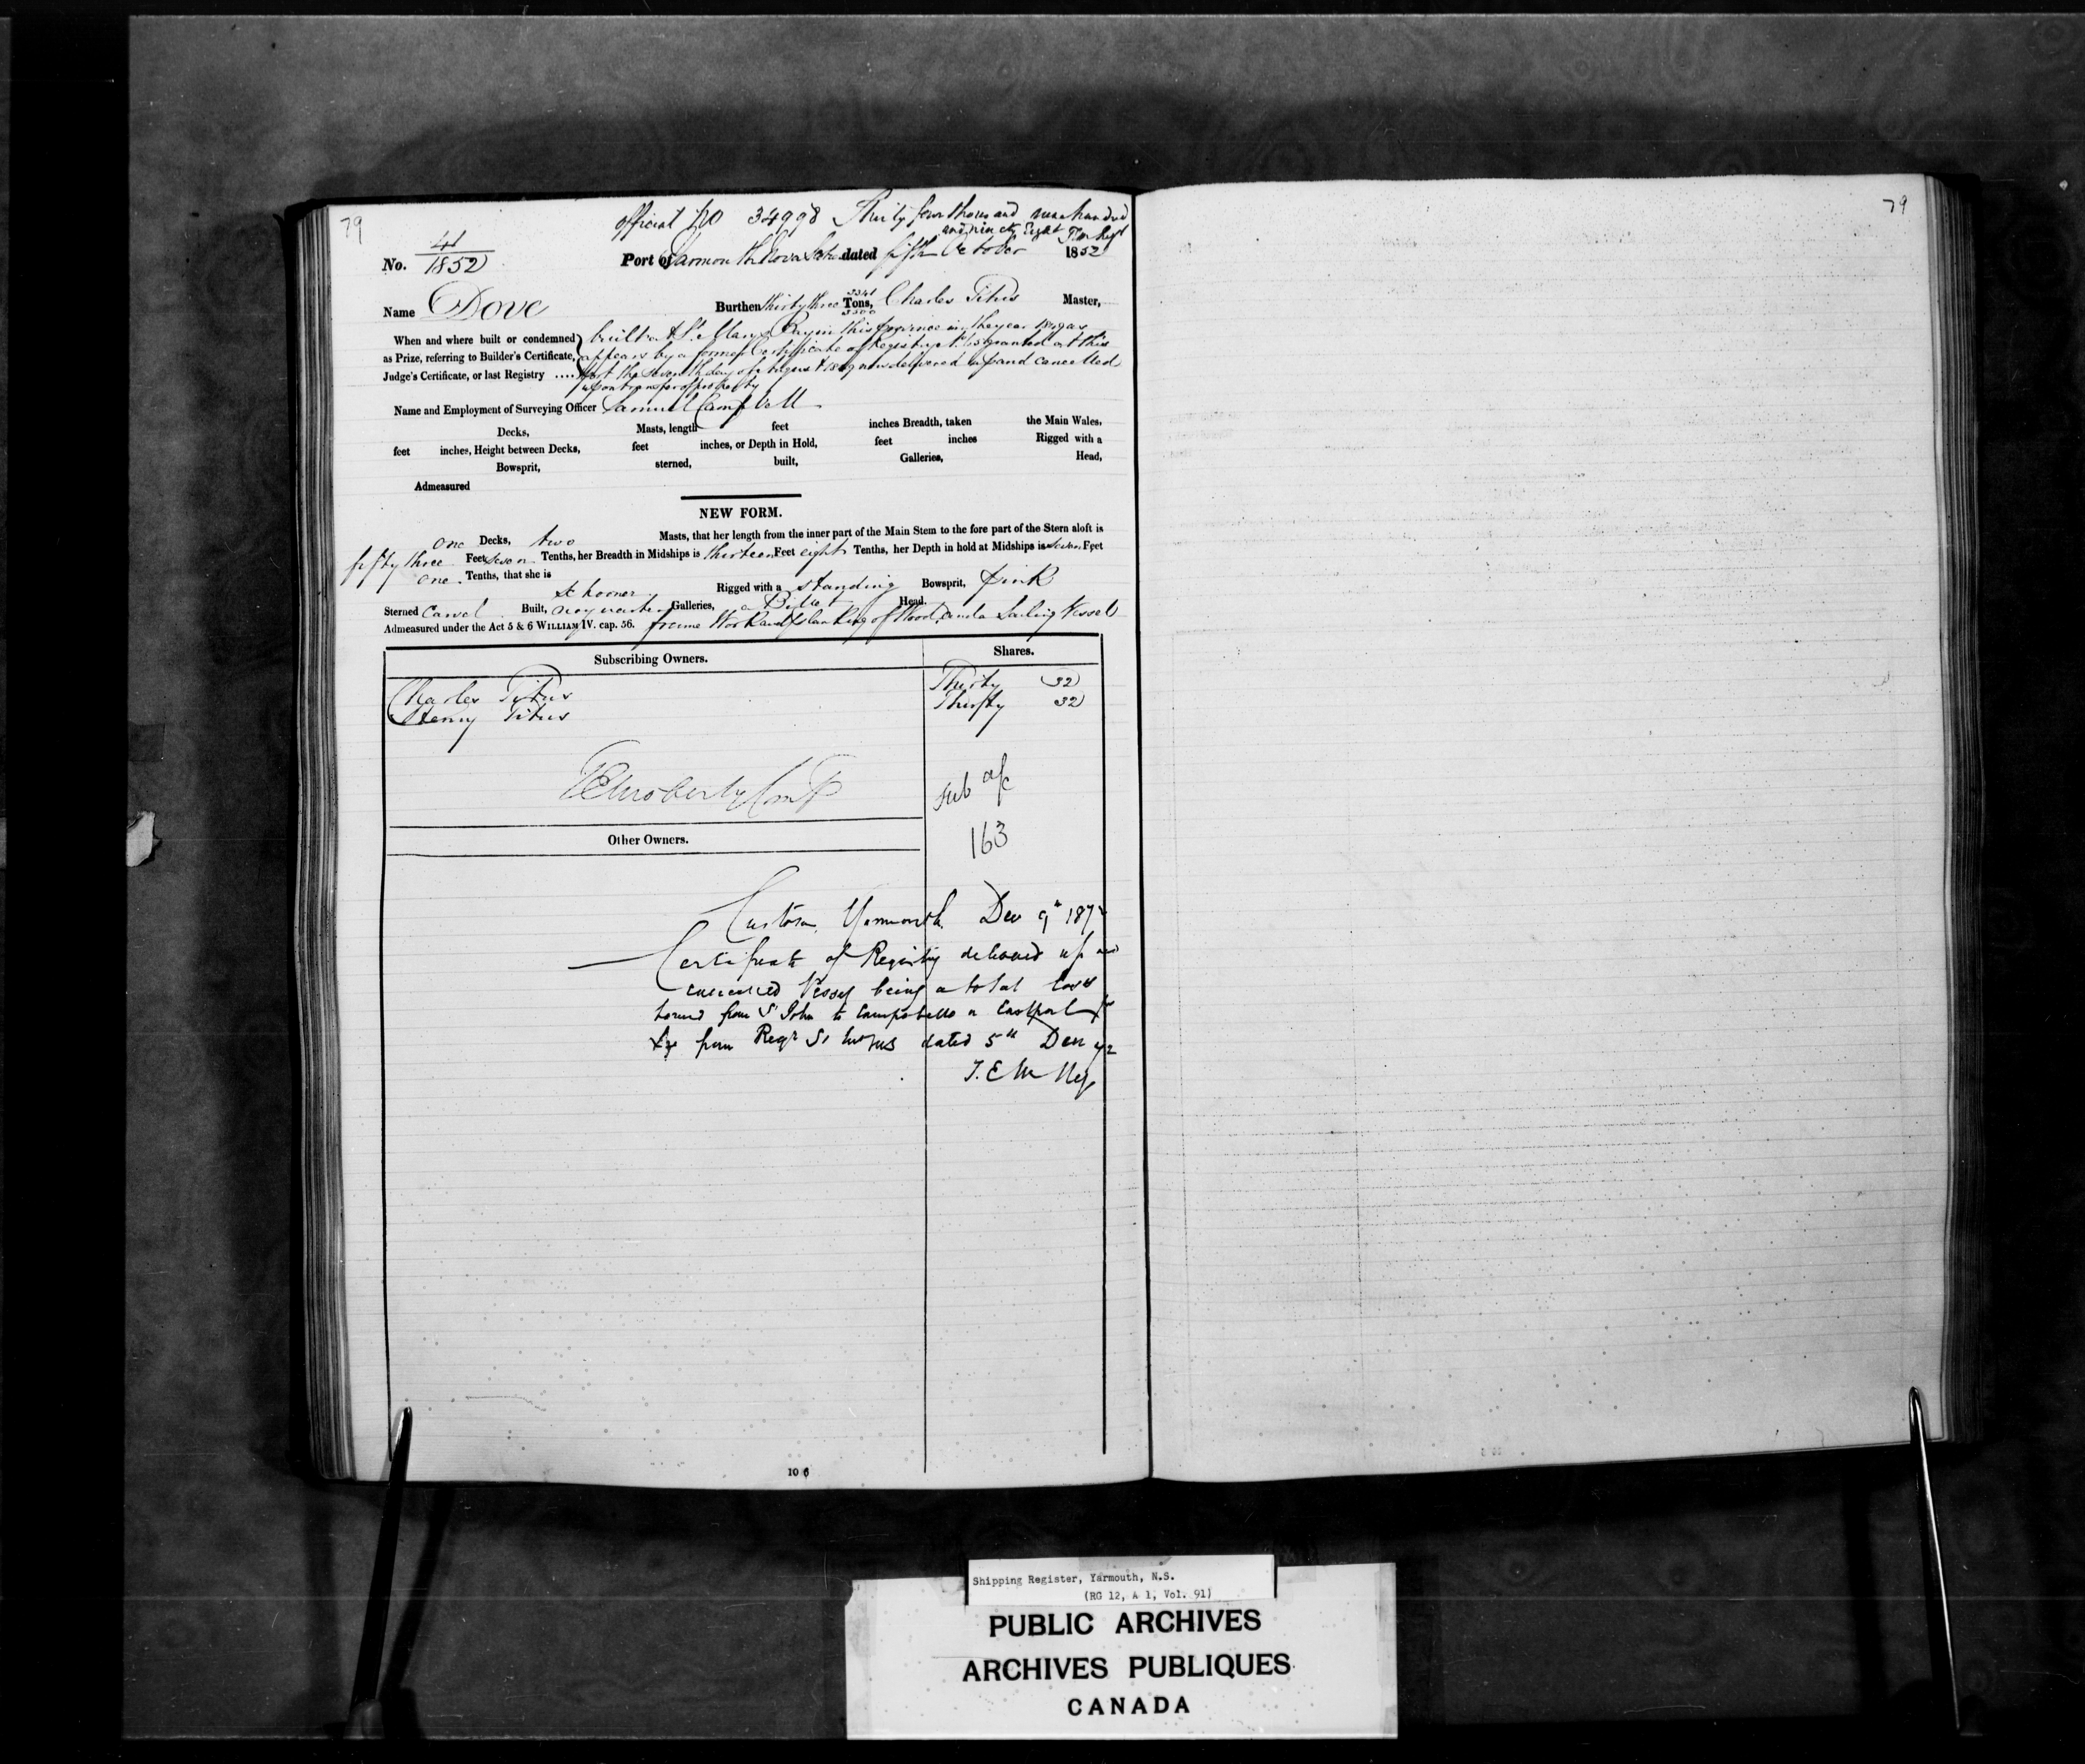 79
79
official No 34998 Thirty four thousand nine hundred
and ninety Eight
41
No. 1852
Port of Yarmouth Nova Scotia dated fifth October 1852
Name Dove Burthen thirty three 3341 Tons, 3500 Charles Titus Master,
When and where built or condemned built at St. Marys Bay in this province in the year as
as Prize, referring to Builder's Certificate, appears by a former Certificate of Registry granted at this
Judge's Certificate, or last Registry .... Port the seventh day of August now delivered up and cancelled
upon transfer of property
Name and Employment of Surveying Officer Samuel Campbell
Decks, Masts, length feet inches Breadth, taken the Main Wales,
feet inches, Height between Decks, feet inches, or Depth in Hold, feet inches Rigged with a
Bowsprit, sterned, built, Galleries, Head,
Admeasured
NEW FORM.
one Decks, two Masts, that her length from the inner part of the Main Stem to the fore part of the Stern aloft is
fifty three Feet seven Tenths, her Breadth in Midships is thirteen Feet eight Tenths, her Depth in hold at Midships is seven Feet
one Tenths, that she is
Schooner Rigged with a standing Bowsprit, pink
Sterned Carvel Built, no quarter Galleries, a Billet Head.
Admeasured under the Act 5 & 6 WILLIAM IV. cap. 56. frame Work and planking of Wood, and a Sailing Vessel
Subscribing Owners. Shares.
Charles Titus Thirty 32
Henry Titus Thirty 32
Sub a/c
163
Other Owners.
Customs, Yarmouth. Dec 9th 187
Certificate of Registry delivered up and
cancelled Vessel being a total loss
bound from St John to Campobello or Eastport
per from Regr St dated 5th Dec 72
10 6
Shipping Register, Yarmouth, N.S.
(RG 12, A 1, Vol. 91)
PUBLIC ARCHIVES
ARCHIVES PUBLIQUES
CANADA